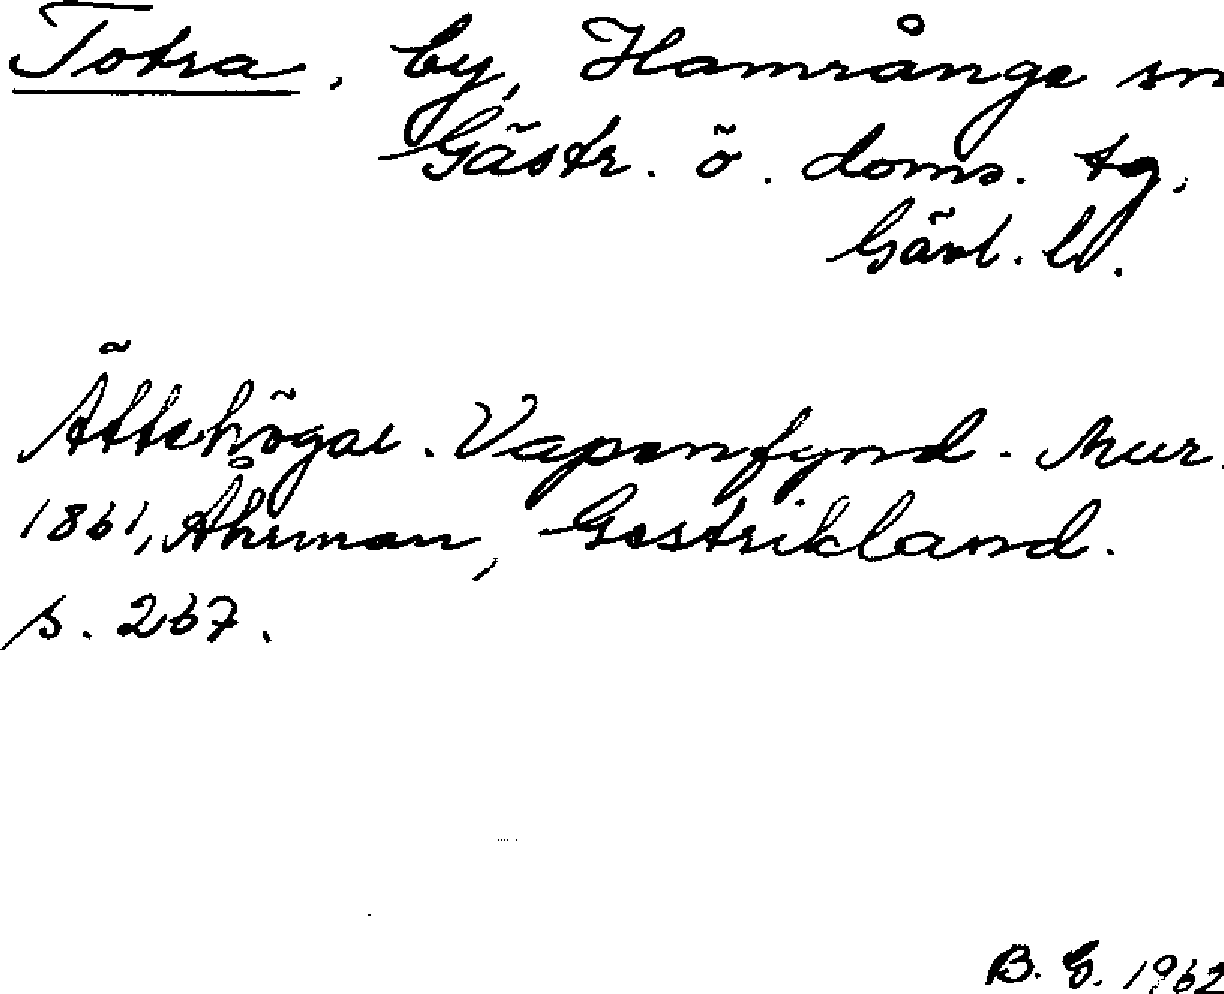 Totra, by, Hamrånge sn
Gästr. ö. doms. tg.
Gävl. l.
Ättehögar. Vapenfynd. Mur.
1861, Åhrman, Gestrikland.
s. 267.
B. E. 1962